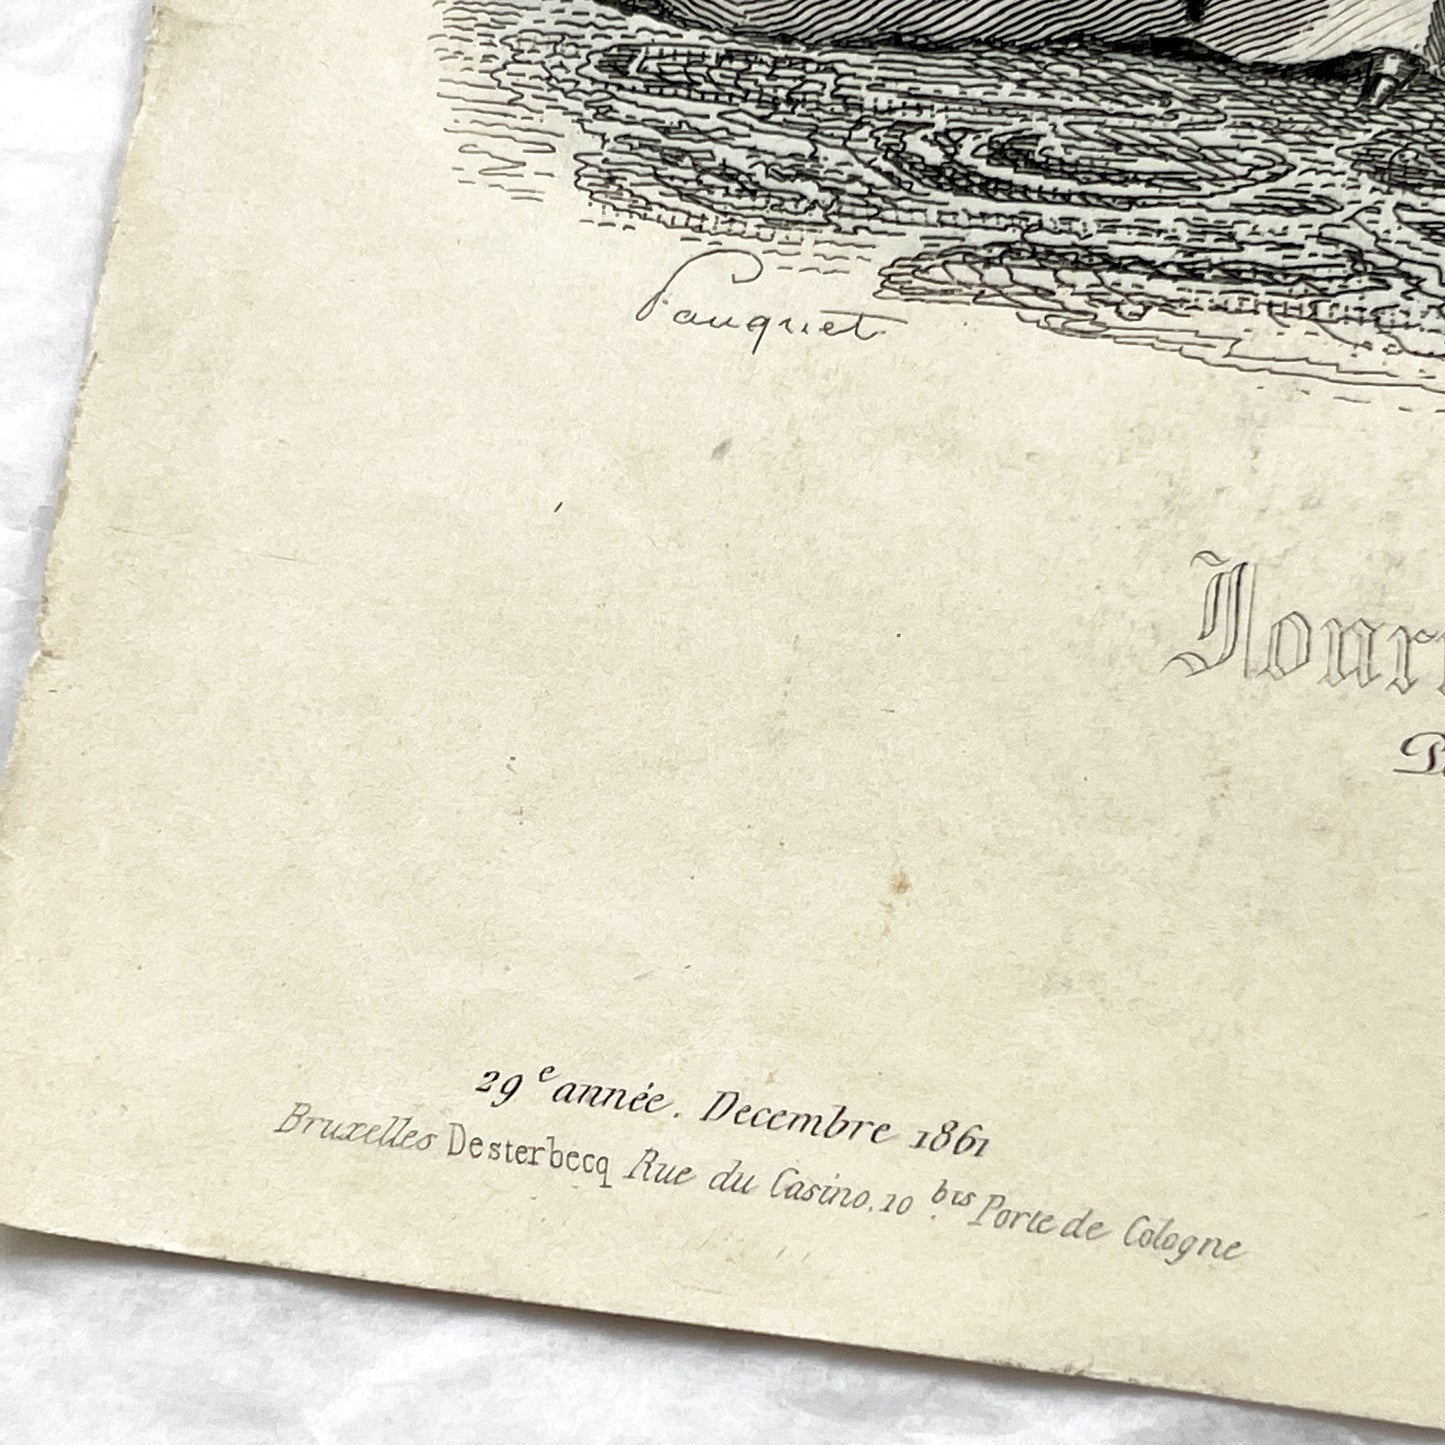 Pauquet
Jour
29e année. Decembre 1861
Bruxelles Desterbecq Rue du Casino, 10 bis Porte de Cologne